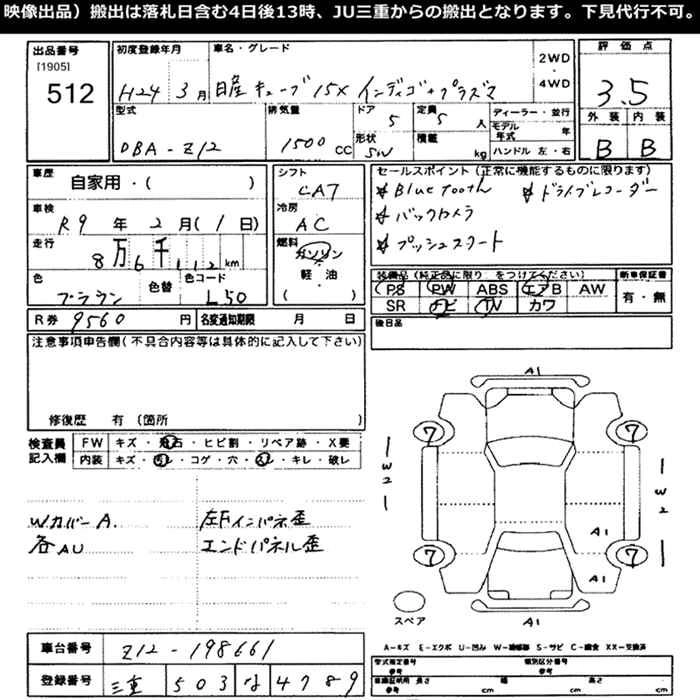 映像出品）搬出は落札日含む4日後13時、JU三重からの搬出となります。下見代行不可。
出品番号
[1905]
512
初度登録年月
H24 3月
車名・グレード
日産キューブ 15X インディゴ+プラズマ
2WD
・
4WD
評価点
3.5
型式
DBA-Z12
排気量
1500 CC
ドア
5
形状
SW
定員
5 人
積載
kg
ディーラー・並行
モデル年式 年
ハンドル 左・右
外装 内装
B B
車歴
自家用・( )
車検
R9 年 2 月 ( 1 日)
走行
8万6千112km
色
ブラウン
色替
色コード
L50
シフト
CA7
冷房
AC
燃料
ガソリン
軽・油
( )
セールスポイント（正常に機能するものに限ります）
Bluetooth ドライブレコーダー
バックカメラ
プッシュスタート
装備品（純正品に限り をつけてください）
PS PW ABS エアB AW
SR ナビ TV カワ
新車保証書
有・無
R券 9560 円
名変通知期限 月 日
後日品
注意事項申告欄（不具合内容等は具体的に記入して下さい）
修復歴 有（箇所 ）
検査員記入欄
FW キズ・飛石・ヒビ割・リペア跡・X要
内装 キズ・汚レ・コゲ・穴・スレ・キレ・破レ
Wカバー A.
各AU
左Fインパネ歪
エンドパネル歪
A1
7 7
W2 W2
A1
7 7
A1
スペア
A1
A－キズ E－エクボ U－凹み W－補修跡 S－サビ C－腐食 XX－交換済
車台番号
Z12-198661
登録番号
三重 503 な 4789
型式指定番号
参考
類別区分番号
参考
車検証明用 長さ 幅 高さ
参考 cm cm cm